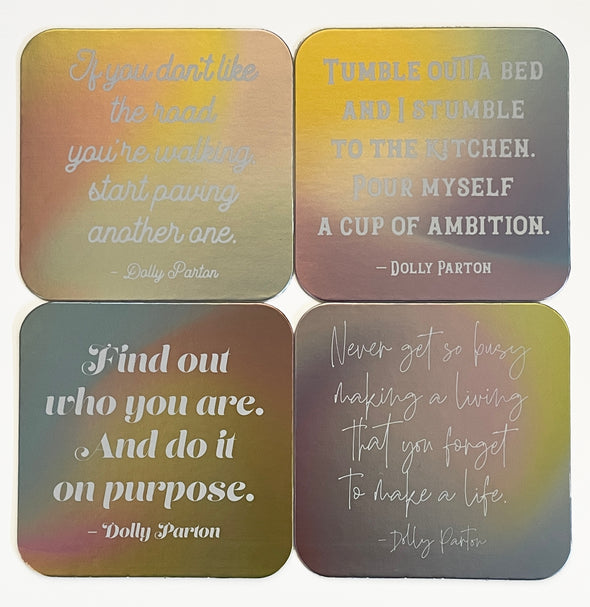 If you don't like
the road
you're walking,
start paving
another one.
- Dolly Parton
TUMBLE OUTTA BED
AND I STUMBLE
TO THE KITCHEN.
POUR MYSELF
A CUP OF AMBITION.
– DOLLY PARTON
Find out
who you are.
And do it
on purpose.
– Dolly Parton
Never get so busy
making a living
that you forget
to make a life.
- Dolly Parton